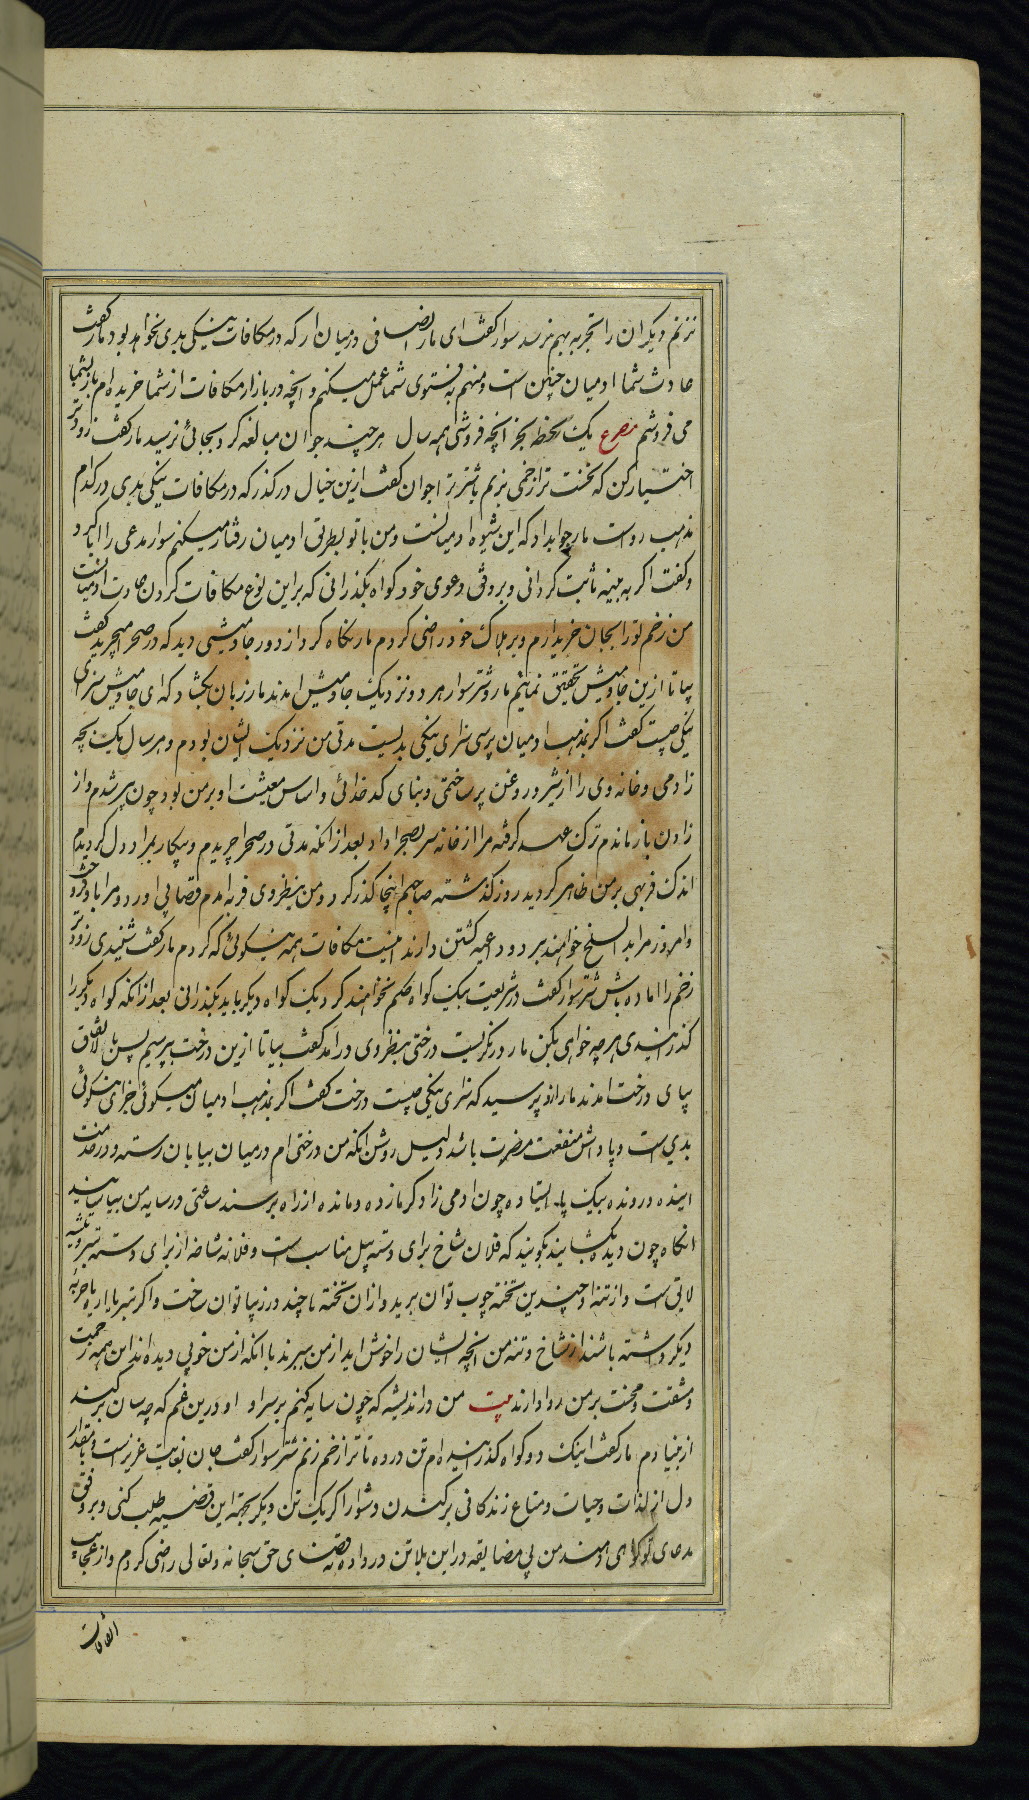 نزنم دیگران را تجربه بهم نرسد سوار گفت ای مار انصافی در میان ار که در مکافات نیکی بدی نخواهد بود مار گفت
عادت شما ادمیان چنین است و منهم بفتوی شما عمل میکنم و انچه در بازار مکافات از شما خریده ام باز بشما
می فروشم مصرع یک لحظه بخر انچه فروشی همه سال هر چند جوان مبالغه کرد بجائی نرسید مار گفت زودتر
اختیار کن که نخست ترا زخمی بزنم یا شتر ترا جوان گفت ازین خیال در گذر که در مکافات نیکی بدی در کدام
مذهب رواست مار جواب داد که این شیوه ادمیانست و من با تو بطریق ادمیان رفتار میکنم سوار مدعی را ابا کرد
و گفت اگر به بینه ثابت گردانی و بروفق دعوی خود گواه بگذرانی که براین نوع مکافات کردن عادت ادمیانست
من زخم تورا بجان خریدارم و بر هلاک خود راضی گردم مار نگاه کرد از دور جاومیشی دید که در صحرا میچرید گفت
بیا تا ازین جاومیش تحقیق نمائیم مار و شتر سوار هر دو نزدیک جاومیش امدند مار زبان بگشاد که ای جاومیش سزای
نیکی چیست گفت اگر بمذهب ادمیان پرسی سزای نیکی بدیست مدتی من نزدیک ایشان بودم و هر سال یک بچه
زادمی و خانه وی را از شیر و روغن پر ساختمی و بنای کدخدائی و اساس معیشت او بر من بود چون پیر شدم و از
زادن باز ماندم ترک عهد گرفته مرا از خانه سر بصحرا داد بعد ازانکه مدتی در صحرا چریدم و بیکار بمراد دل گردیدم
اندک فربهی بر من ظاهر گردید روز گذشته صاحبم اینجا گذر کرد و من بنظر وی فربه امدم قصابی اورد و مرا باو فروخت
و امروز مرا بدار السلخ خواهند برد و داعیه کشتن دارند اینست مکافات همه نیکوئی که کردم مار گفت شنیدی زودتر
زخم را اماده باش شتر سوار گفت در شریعت بیک گواه حکم نخواهند کرد یک گواه دیگر باید بگذرانی بعد ازانکه گواه دیگر را
گذرانیدی هر چه خواهی بکن مار در نگریست درختی بنظر وی درامد گفت بیا تا ازین درخت بپرسیم پس بالاتفاق
بپای درخت امدند مار ازو پرسید که سزای نیکی چیست درخت گفت اگر بمذهب ادمیان میگوئی جزای نیکوئی
بدیست و پاداش منفعت مضرت باشد دلیل روشن انکه من درختی ام در میان بیابان رسته و در خدمت
اینده و رونده بیک پا ایستاده چون ادمی زاد گرمازده و مانده از راه برسند ساعتی در سایه من بیاسایند
انگاه چون دیده بگشایند بگویند که فلان شاخ برای دسته بیل مناسب است و فلانه شاخه از برای دسته تبر و تیشه
لایق است و از تنه او چندین تخته چوب توان برید و ازان تخته ها چند در زیبا توان ساخت و اگر تبر یا اره یا حربه
دیگر داشته باشند از شاخ و تنه من انچه ایشان را خوش اید از من میبرند با انکه از من خوبی دیده اند این همه زحمت
و مشقت و محنت بر من روا دارند بیت من در اندیشه که چون سایه کنم بر سر او او درین غم که چه سان بر کند
از بنیادم مار گفت اینک دو گواه گذرانیده ام تن در ده تا ترا زخم زنم شتر سوار گفت جان بغایت عزیز است و بمقدار
دل از لذات و حیات و متاع زندگانی بر کندن دشوار اگر یک تن دیگر بجهة این قضیه طلب کنی و بر وفق
مدعای تو گواهی دهند من بی مضایقه در این بلا تن در داده به قضای حق سبحانه و تعالی راضی گردم و از عجایب
اتفاقات